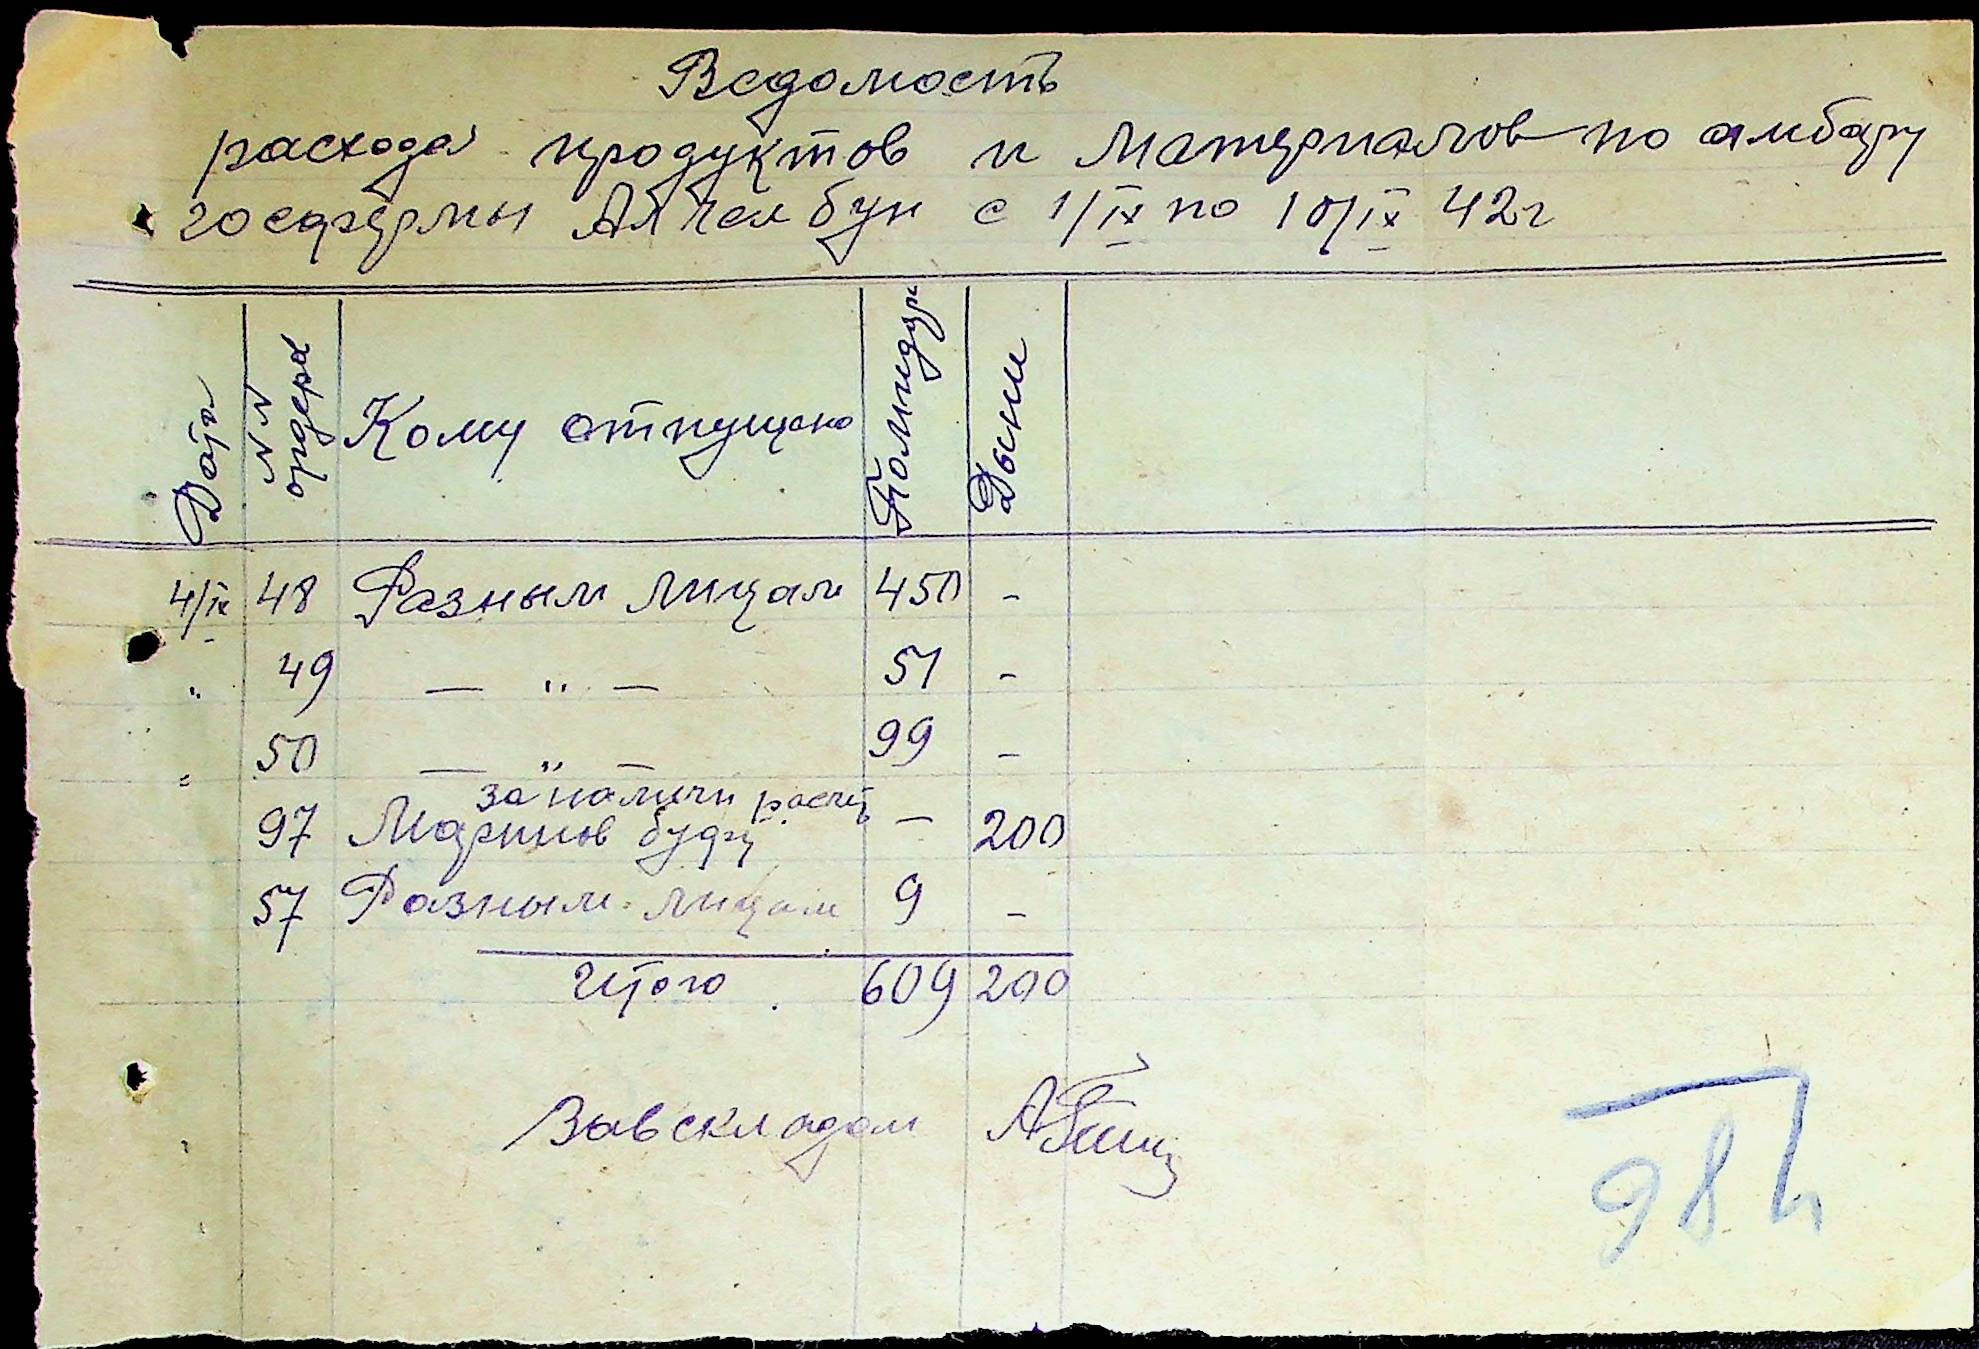 Ведомость
расхода продуктов и материалов по амбару
госфермы с 1/IX по 10/IX 42г
Дата №№ ордера Кому отпущено Помидор Дыни
4/IX 48 Разным лицам 450 -
" 49 — " — 51 -
" 50 — " — 99 -
за наличн расчет
97 Маринов — 200
57 Разным лицам 9 -
Итого 609 200
Завскладом
98